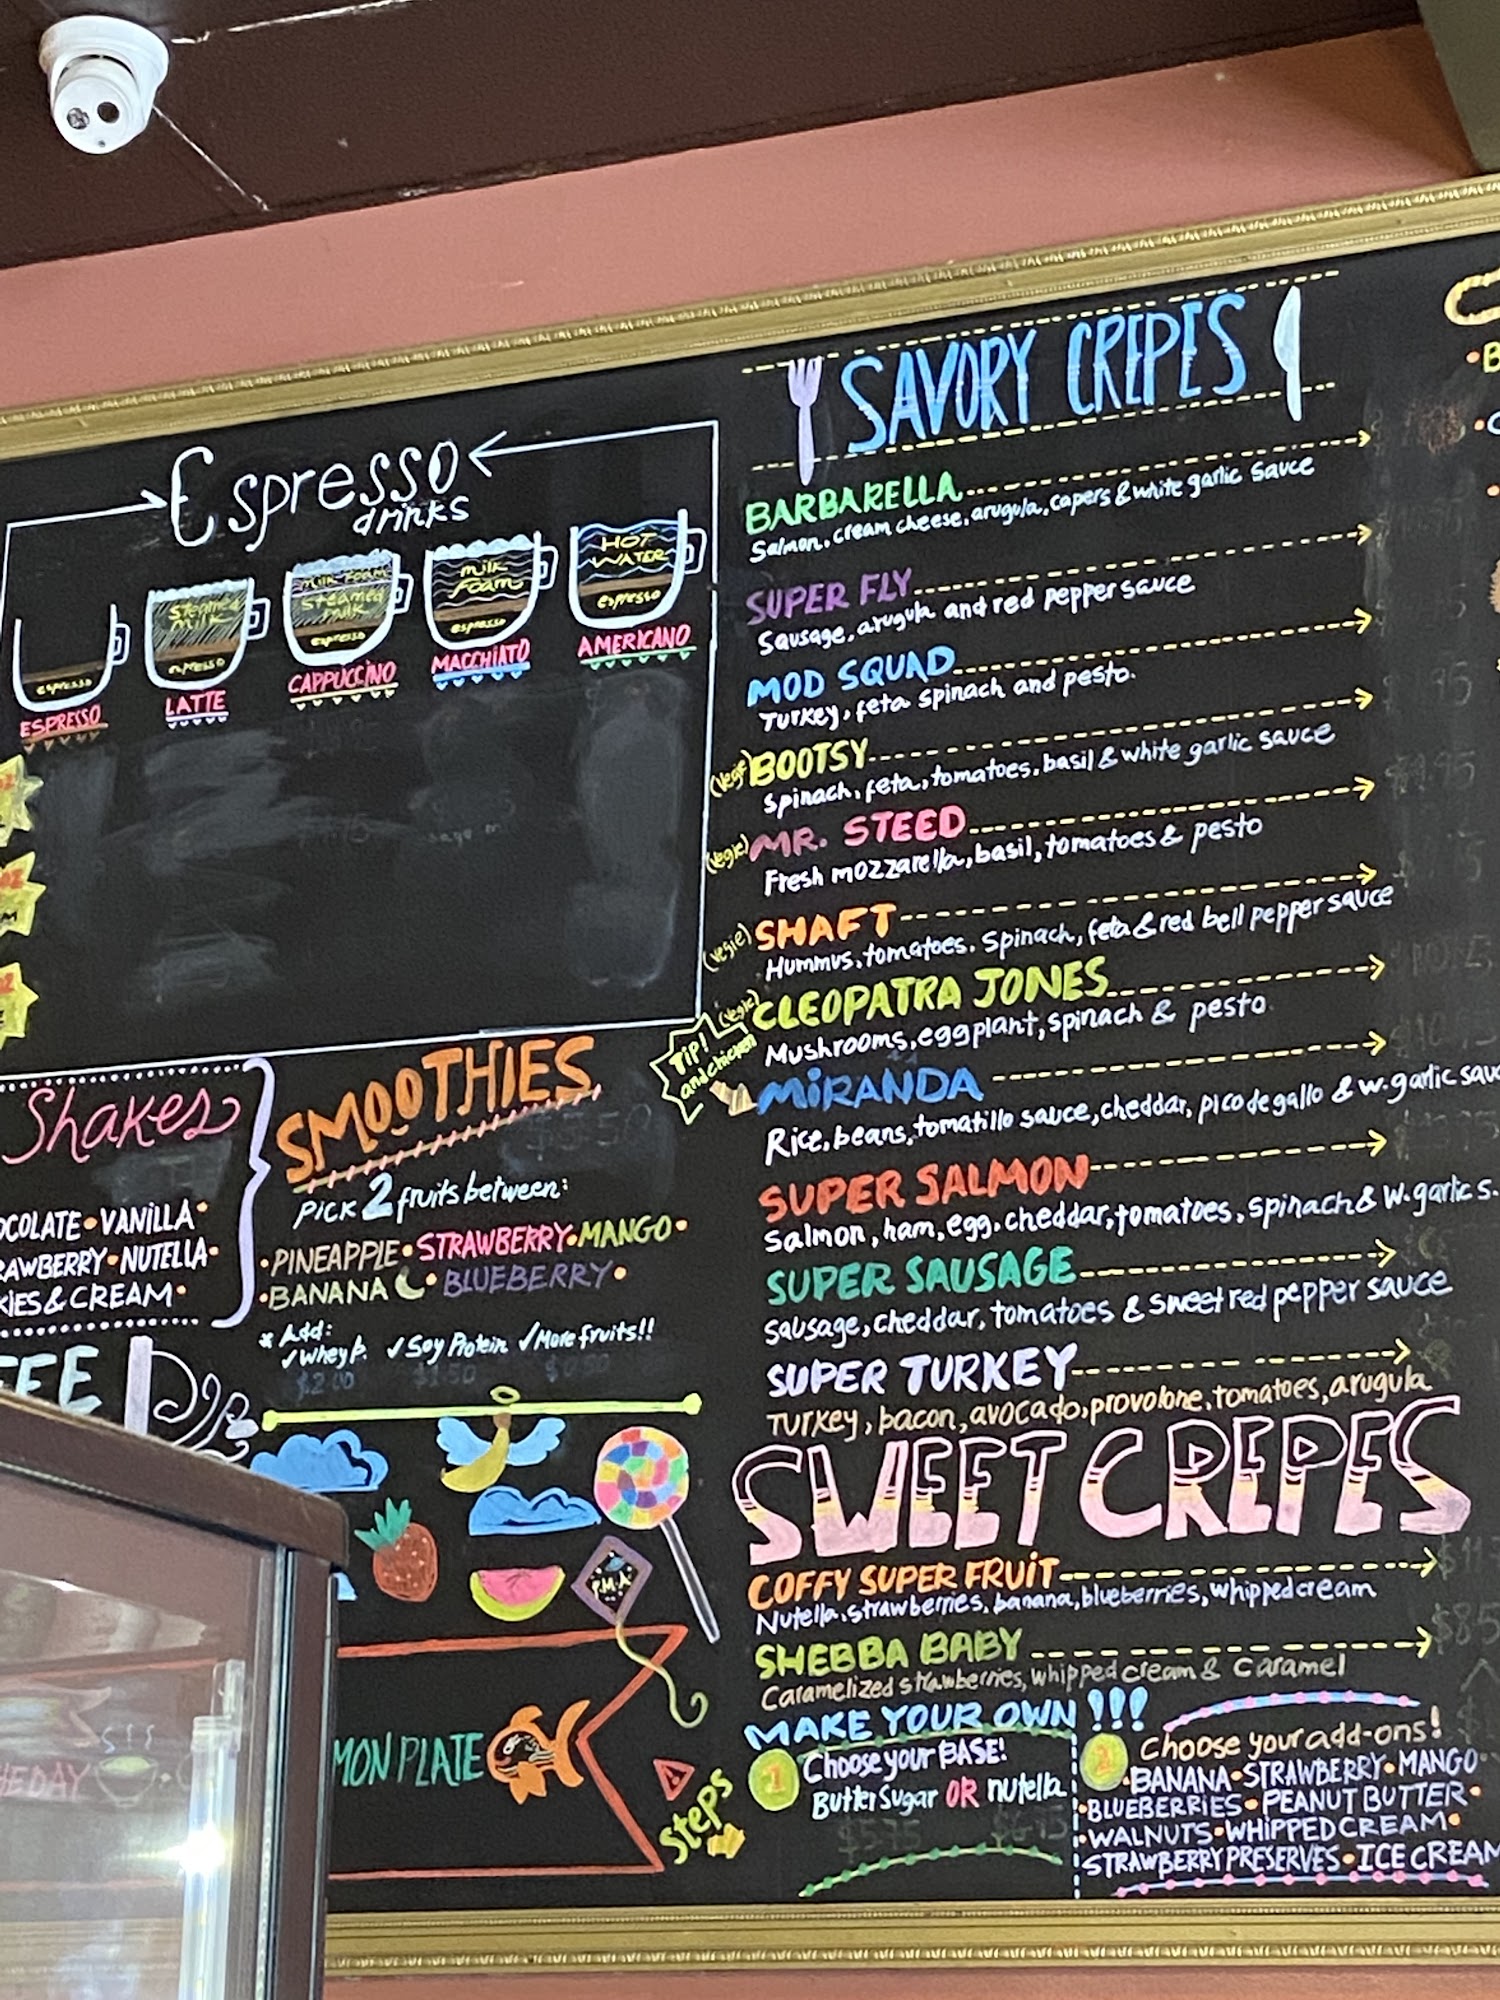 Espresso
drinks
espresso
ESPRESSO
Steamed
milk
espresso
LATTE
milk foam
Steamed
milk
espresso
CAPPUCCINO
milk
Foam
espresso
MACCHIATO
HOT
WATER
espresso
AMERICANO
Shakes
VANILLA
NUTELLA
& CREAM
SMOOTHIES
PICK 2 fruits between:
•PINEAPPLE•STRAWBERRY•MANGO•
•BANANA•BLUEBERRY•
* Add:
✓Whey P. ✓Soy Protein ✓More fruits!!
$2.00 $1.50 $0.50
P.M.A
PLATE
SAVORY CREPES
BARBARELLA
Salmon, cream cheese, arugula, capers & white garlic sauce
SUPER FLY
Sausage, arugula and red pepper sauce
MOD SQUAD
Turkey, feta spinach and pesto.
(vegie) BOOTSY
Spinach, feta, tomatoes, basil & white garlic sauce
(vegie) MR. STEED
Fresh mozzarella, basil, tomatoes & pesto
(vegie) SHAFT
Hummus, tomatoes. Spinach, feta & red bell pepper sauce
(vegie) CLEOPATRA JONES
Mushrooms, eggplant, spinach & pesto
TIP!
and chicken
MIRANDA
Rice, beans, tomatillo sauce, cheddar, pico de gallo & w. garlic
SUPER SALMON
Salmon, ham, egg, cheddar, tomatoes, spinach & w. garlic s.
SUPER SAUSAGE
Sausage, cheddar, tomatoes & sweet red pepper sauce
SUPER TURKEY
Turkey, bacon, avocado, provolone, tomatoes, arugula
SWEET CREPES
COFFY SUPER FRUIT
Nutella, strawberries, banana, blueberries, whipped cream
SHEBBA BABY
Caramelized strawberries, whipped cream & caramel
MAKE YOUR OWN!!!
Steps
1 Choose your BASE!
Butter Sugar OR nutella
$5.75 $6.75
2 Choose your add-ons!
•BANANA•STRAWBERRY•MANGO
•BLUEBERRIES•PEANUT BUTTER•
•WALNUTS•WHIPPED CREAM•
STRAWBERRY PRESERVES•ICE CREAM